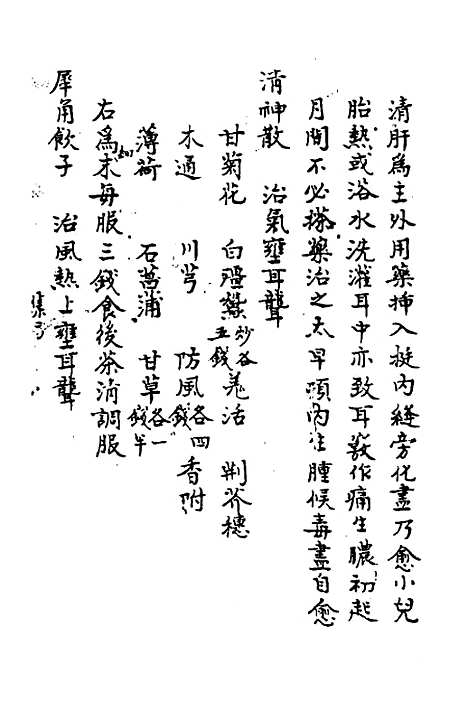 清肝為主外用藥挿入挺內縫旁化盡乃愈小兒
胎熱或浴水洗灌耳中亦致耳發作痛生膿初起
月間不必搽藥治之太早頭內生腫候毒盡自愈
清神散　治氣壅耳聾
甘菊花　白殭蠶炒各五錢　羌活　荆芥穗
木通　川芎　防風各四錢　香附
薄荷　石菖蒲　甘草各一錢半
右為細末每服三錢食後茶淸調服
犀角飲子　治風熱上壅耳聾